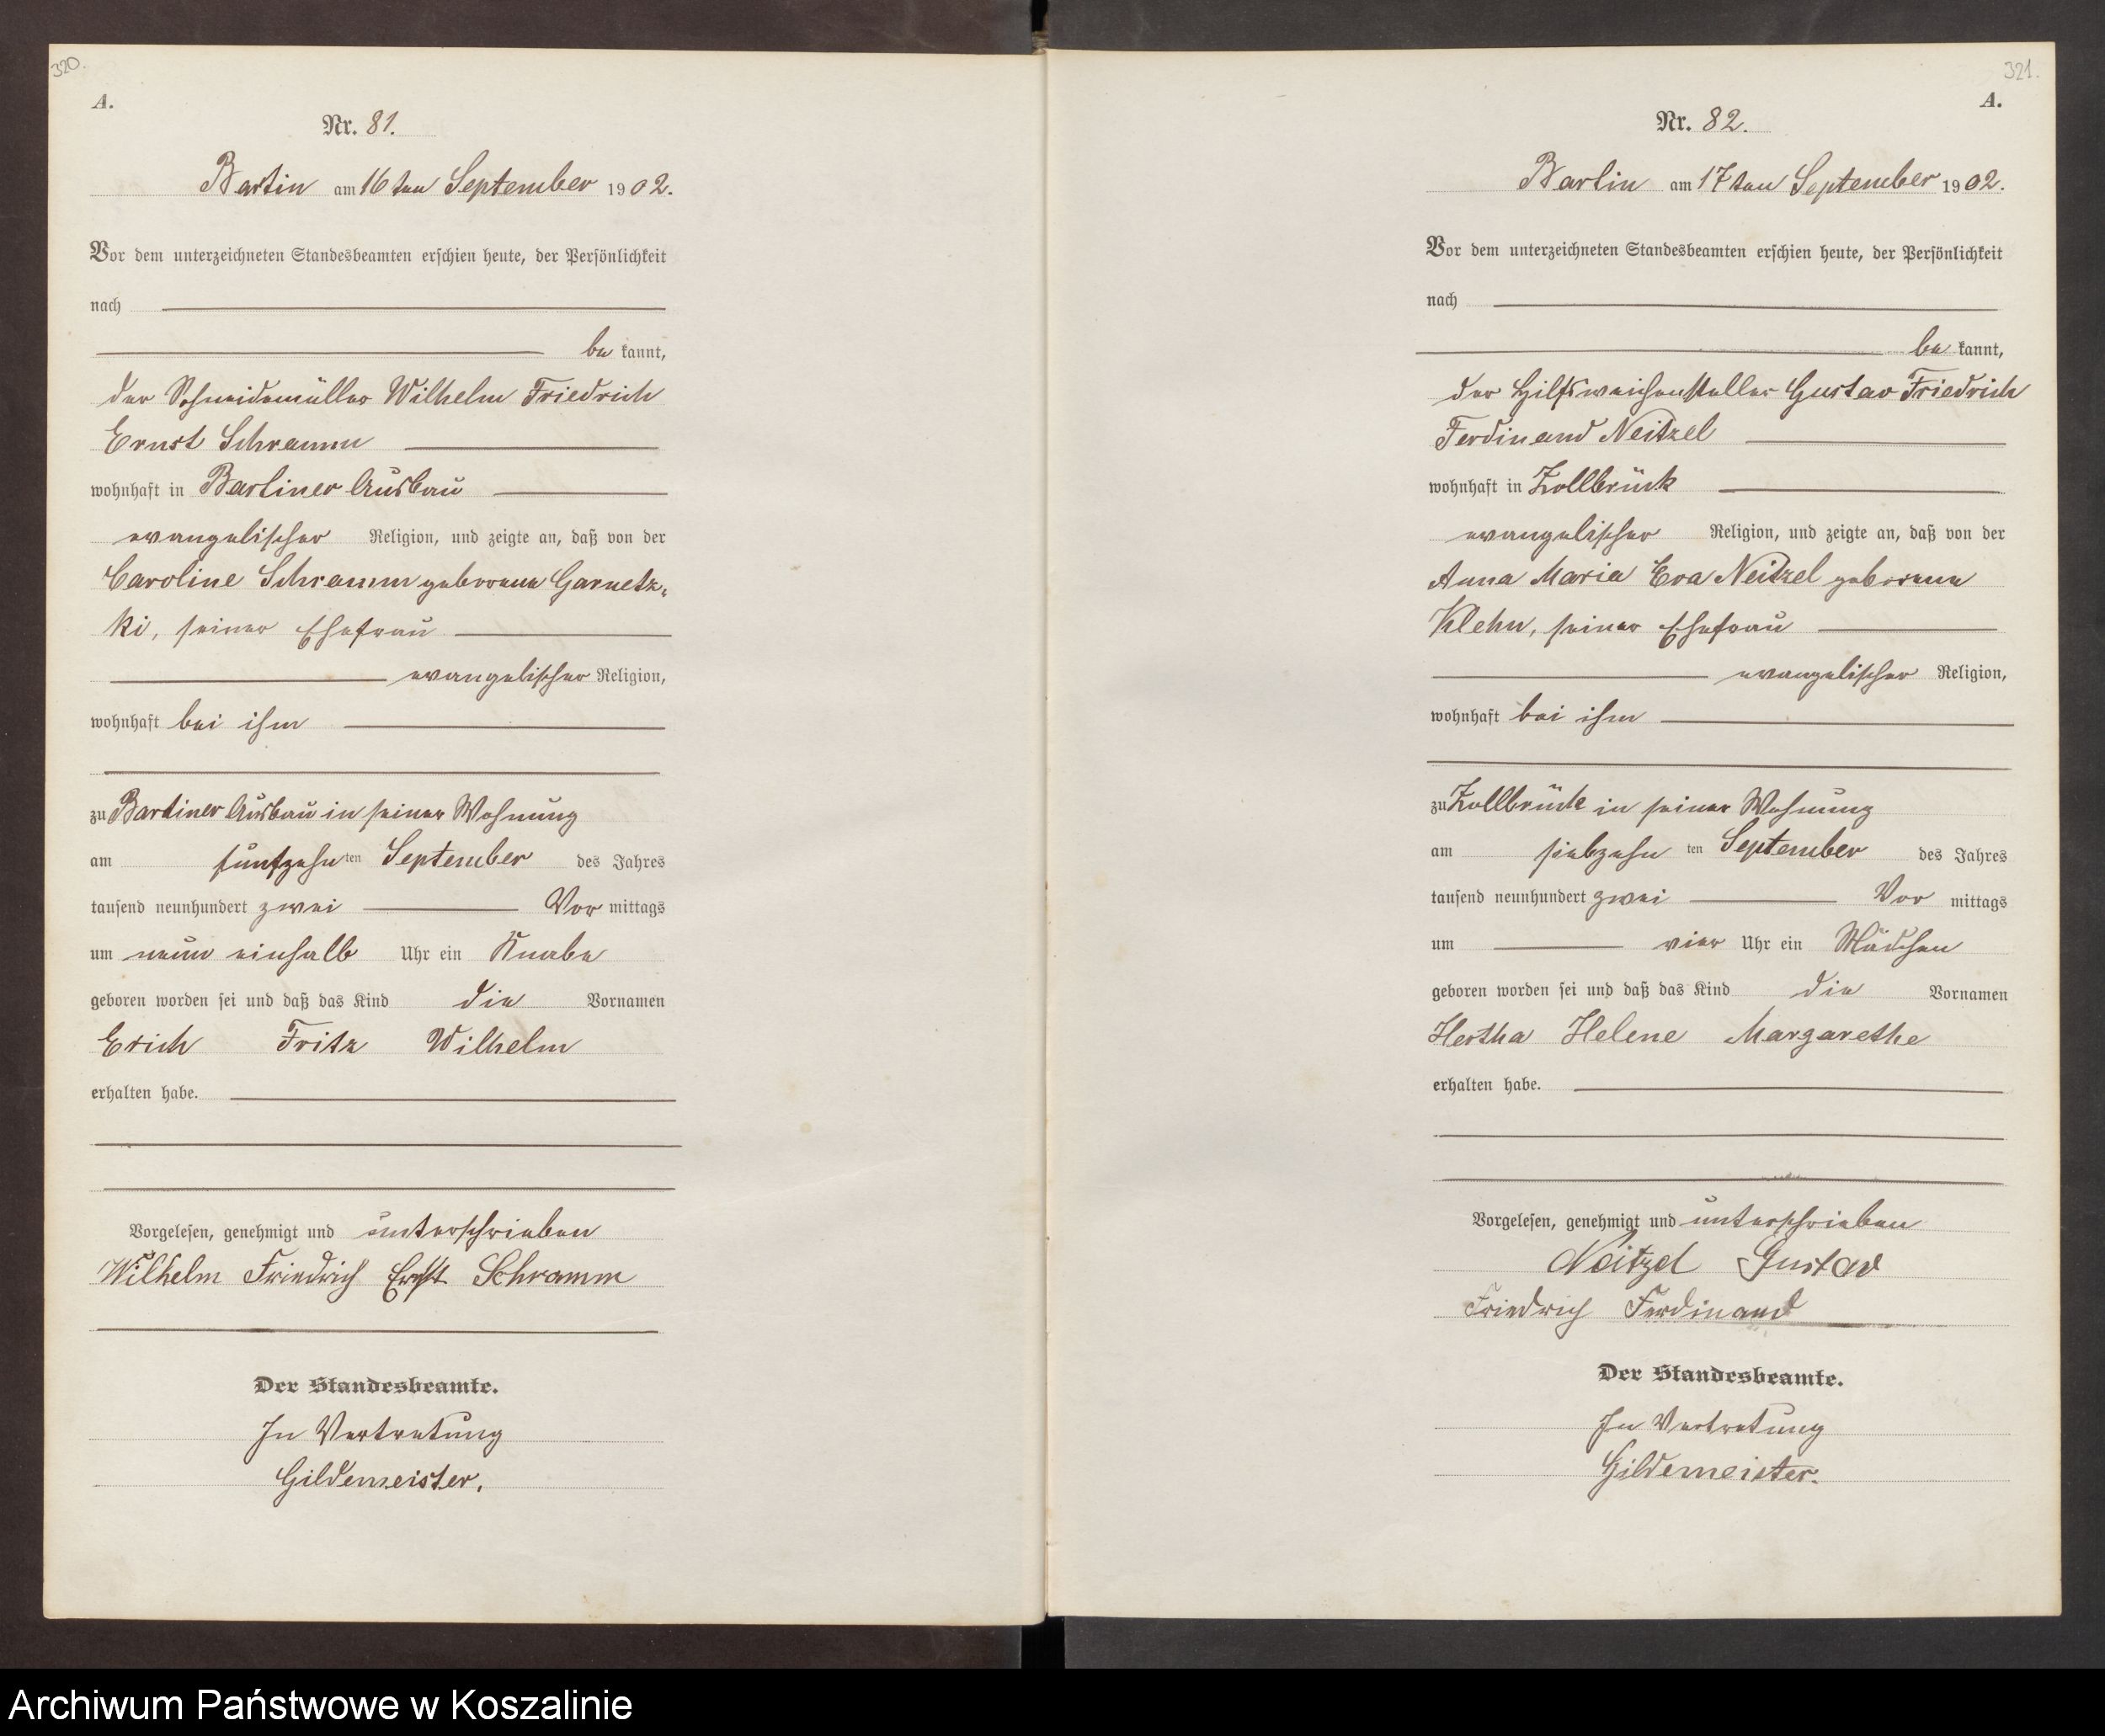 320.
A.
Nr. 81.
Bartin am 16ten September 1902.
Vor dem unterzeichneten Standesbeamten erschien heute, der Persönlichkeit
nach
be kannt,
der Schneidemüller Wilhelm Friedrich
Ernst Schramm
wohnhaft in Bartiner Ausbau
evangelischer Religion, und zeigte an, daß von der
Caroline Schramm geborene Garnetz-
ki, seiner Ehefrau
evangelischer Religion,
wohnhaft bei ihm
zu Bartiner Ausbau in seiner Wohnung
am fünfzehn ten September des Jahres
tausend neunhundert zwei Vor mittags
um neun einhalb Uhr ein Knabe
geboren worden sei und daß das Kind die Vornamen
Erich Fritz Wilhelm
erhalten habe.
Vorgelesen, genehmigt und unterschrieben
Wilhelm Friedrich Ernst Schramm
Der Standesbeamte.
In Vertretung
Gildemeister.
321.
A.
Nr. 82.
Bartin am 17ten September 1902.
Vor dem unterzeichneten Standesbeamten erschien heute, der Persönlichkeit
nach
be kannt,
der Hilfsweichensteller Gustav Friedrich
Ferdinand Neitzel
wohnhaft in Zollbrück
evangelischer Religion, und zeigte an, daß von der
Anna Maria Eva Neitzel geborene
Klehn, seiner Ehefrau
evangelischer Religion,
wohnhaft bei ihm
zu Zollbrück in seiner Wohnung
am siebzehn ten September des Jahres
tausend neunhundert zwei Vor mittags
um vier Uhr ein Mädchen
geboren worden sei und daß das Kind die Vornamen
Hertha Helene Margarethe
erhalten habe.
Vorgelesen, genehmigt und unterschrieben
Neitzel Gustav
Friedrich Ferdinand
Der Standesbeamte.
In Vertretung
Gildemeister.
Archiwum Państwowe w Koszalinie